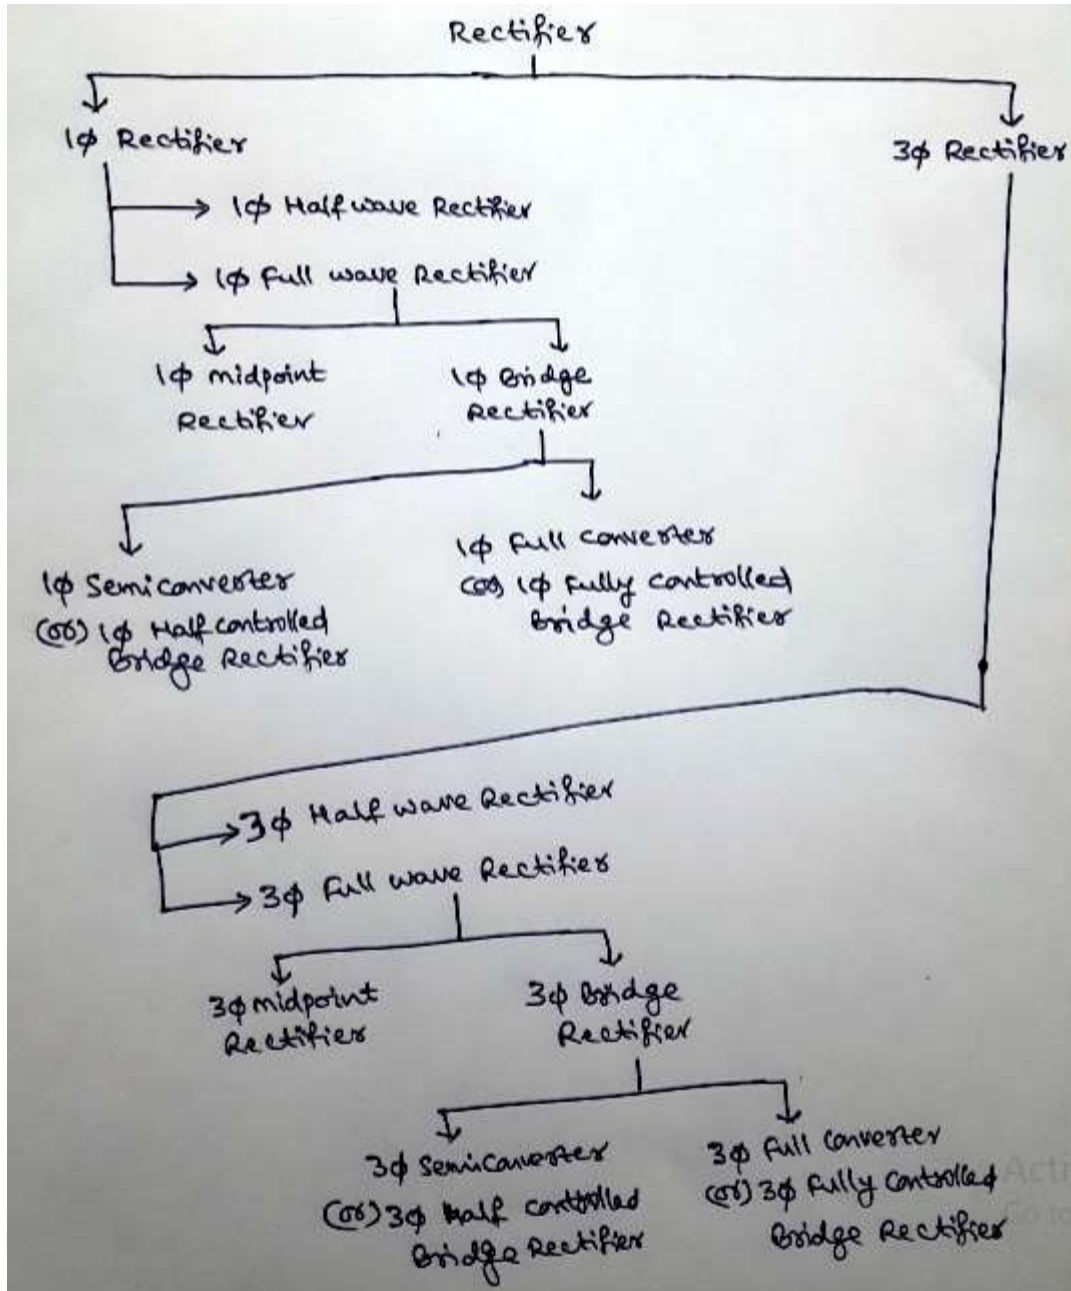 Rectifier
1φ Rectifier
3φ Rectifier
1φ Half wave Rectifier
1φ Full wave Rectifier
1φ midpoint
Rectifier
1φ Bridge
Rectifier
1φ Semiconverter
(or) 1φ Half controlled
Bridge Rectifier
1φ Full converter
(or) 1φ Fully controlled
Bridge Rectifier
3φ Half wave Rectifier
3φ Full wave Rectifier
3φ midpoint
Rectifier
3φ Bridge
Rectifier
3φ Semiconverter
(or) 3φ Half controlled
Bridge Rectifier
3φ Full Converter
(or) 3φ Fully Controlled
Bridge Rectifier